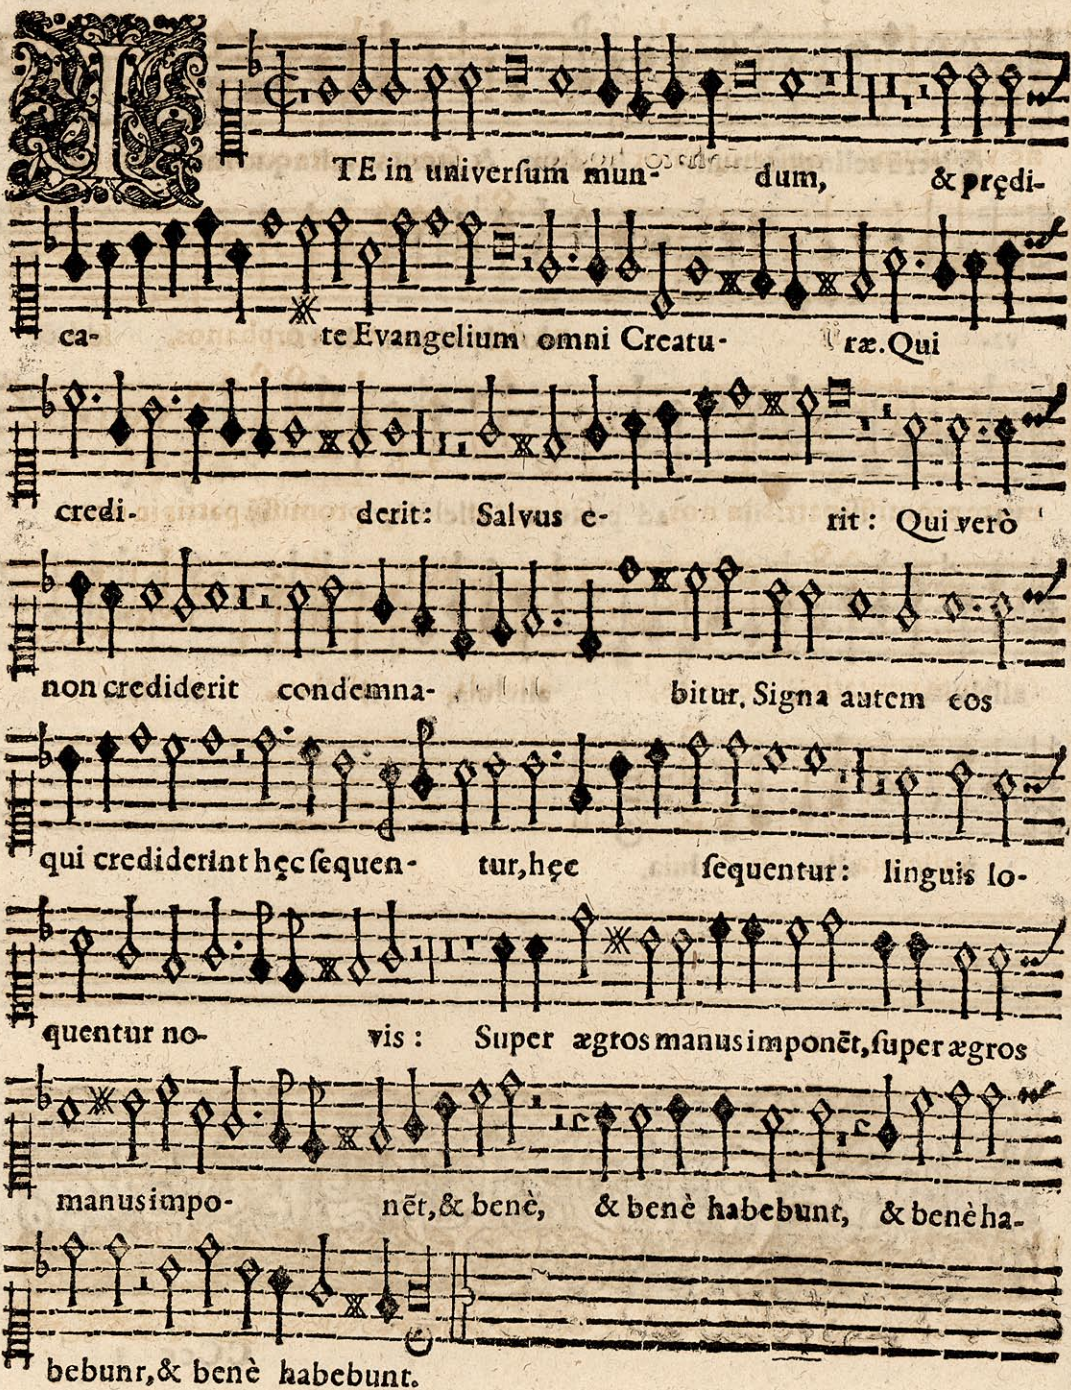 ITE in univerſum mun- dum, & prędi-
ca- te Evangelium omni Creatu- ræ. Qui
credi- derit: Salvus e- rit: Qui verò
non crediderit condemna- bitur. Signa autem eos
qui crediderint hęc ſequen- tur, hęc ſequentur: linguis lo-
quentur no- vis: Super ægros manus imponēt, ſuper ægros
manus impo- nēt, & benè, & benè habebunt, & benè ha-
bebunr, & benè habebunt.